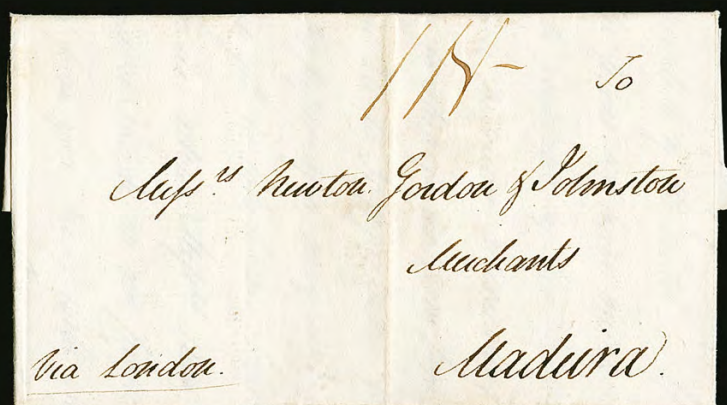 To
Messrs Newton. Gordon & Johnston
Merchants
Madeira.
Via London.